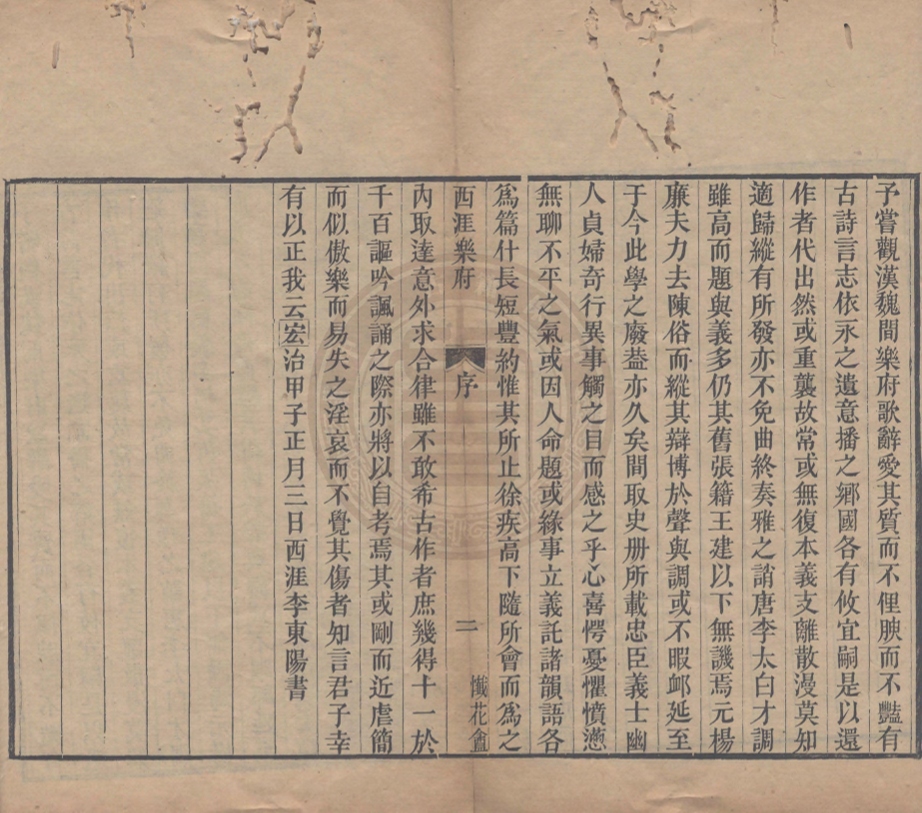 予嘗觀漢魏間樂府歌辭愛其質而不俚腴而不豔有
古詩言志依永之遺意播之鄉國各有攸宜嗣是以還
作者代出然或重襲故常或無復本義支離散漫莫知
適歸縱有所發亦不免曲終奏雅之誚唐李太白才調
雖高而題與義多仍其舊張籍王建以下無譏焉元楊
廉夫力去陳俗而縱其辯博於聲與調或不暇邮延至
于今此學之廢葢亦久矣間取史册所載忠臣義士幽
人貞婦奇行異事觸之目而感之乎心喜愕憂懼憤懣
無聊不平之氣或因人命題或緣事立義託諸韻語各
爲篇什長短豐約惟其所止徐疾高下隨所會而爲之
西涯樂府 序 二 懺花盦
內取達意外求合律雖不敢希古作者庶幾得十一於
千百謳吟諷誦之際亦將以自考焉其或剛而近虐簡
而似傲樂而易失之淫哀而不覺其傷者知言君子幸
有以正我云宏治甲子正月三日西涯李東陽書